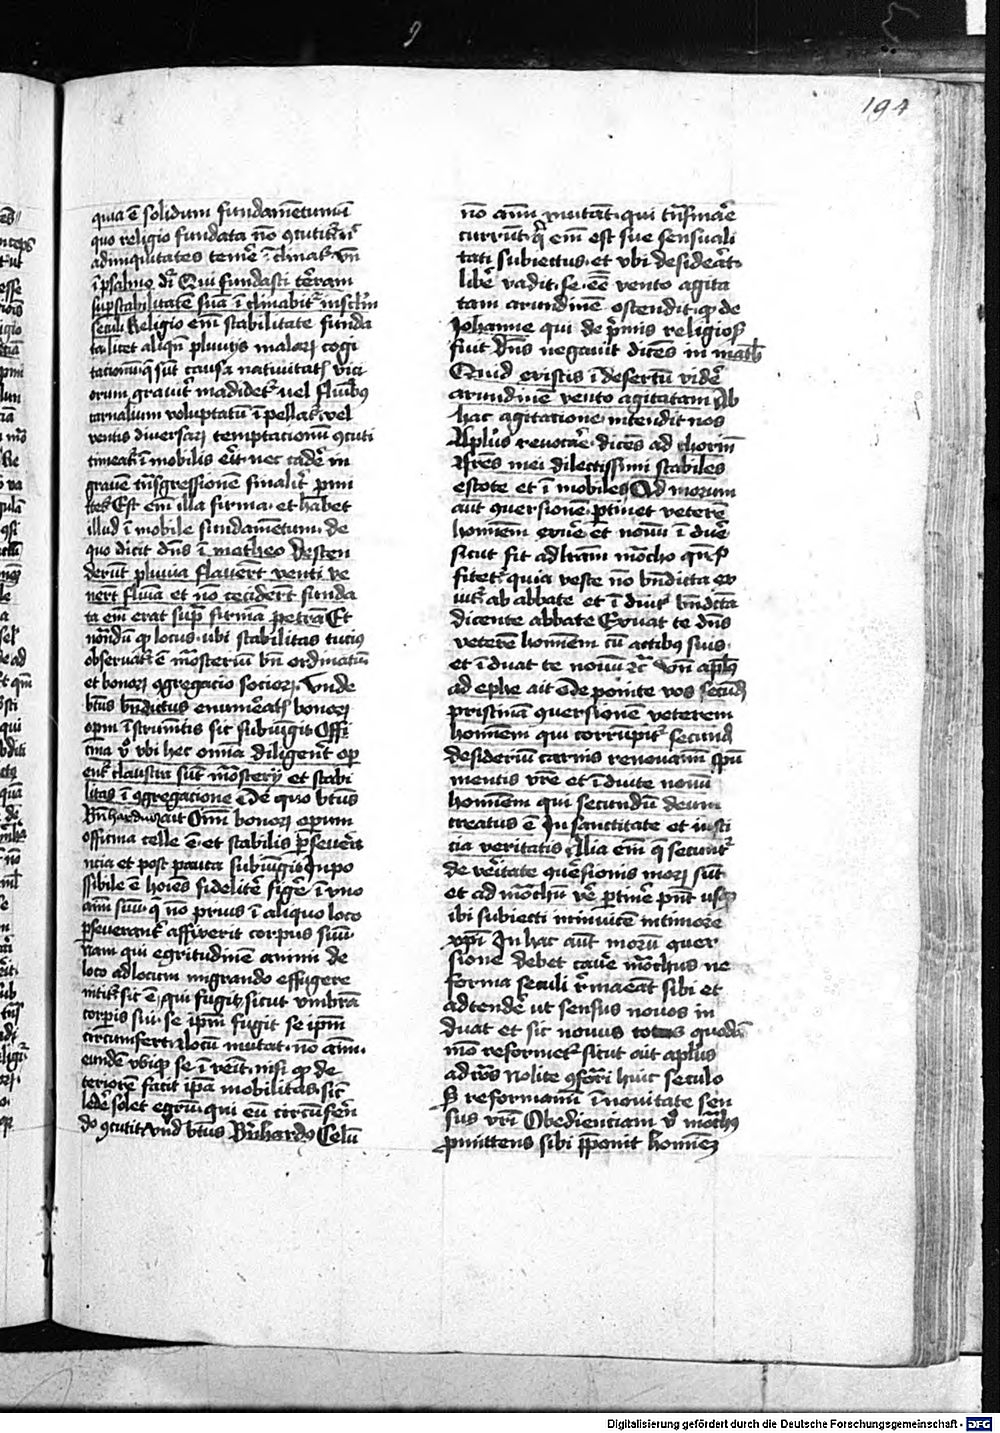 194
quia ē solidum fundamētum ī
quo religio fundata nō ꝯcutit᷑ nͥ
ad iniquitates temē īclinat᷑ Vn̄
ī psalmo dr̄ Qui fundasti terram
sup stabilitatē suā ī clinabit᷑ in sclm̄
seculi Religio em̄ stabilitate funda
ta licet aliqn̄ pluuijs malaꝝ cogi
tacionū q̄ sūt causa natiuitatꝭ vici
orum grauit᷑ madidet᷑ vel flūibꝯ
carnalium voluptatū īpellat᷑ vel
ventis diuersaꝝ temptacionū ꝯcuti
ī mobilis erit nec cadē in
grauē tn̄sgressione finalit᷑
Est em̄ illa firma et habet
illud ī mobile fundamentum de
quo dicit dn̄s ī matheo Descen
derūt pluuia flauert̄ venti ve
nert̄ flūia et nō cecidert̄ funda
ta em̄ erat sup̄ firmā petrā Et
nōndū ꝙ locus vbi stabilitas tuciꝯ
obseruat᷑ ē mōsteriū bn̄ ordinatū
et bonoꝝ ꝯgregacio socioꝝ Vnde
btūs bn̄dictus enumeatꝭ bonoꝝ
opm̄ īstrumētis sic subiūgit Offi
cina v̊ vbi hec omīa diligent̄ op
ent᷑ claustra sūt mōsterij et stabi
litas ī ꝯgregacione De quo btūs
Bn̄hardus ait Omī bonoꝝ operum
officina celle ē et stabilis pseuera
ncia et post pauca subiūgit Inpo
ssibile ē hoīes fidelitē figē ī vno
aīm suū q̄ nō prius ī aliquo loco
pseuerant᷑ affixerit corpus suū
Nam qui egritudinē animi de
loco ad locum migrando effugere
nitit᷑ sic ē qui fugit sicut vmbrā
corpis sui se ipm̄ fugit se ipm̄
circumfert locū mutat nō aīm
eundē vbiqꝫ se īvēit nisi ꝙ de
teriorē facit ipā mobilitas sic̄
ledē solet egrū qui eū circūfen̄
do ꝯcutit vn̄ btūs Bn̄hardꝯ Celū
nō aīm mutāt qui tn̄smaē
currūt q̄ em̄ est sue sensuali
tati subiectus et vbi desideāt
libē vadit se eē vento agita
tam arundinē ostendit ꝙ de
Johanne qui de p̄mis religioſꝭ
fuit Dn̄s negauit dicēs in math̄
Quid existis ī desertū vidē
arundinē vento agitatam Ab
hac agitacione intendit nos
Apl̄us reuocāe dicēs ad Chorin̄
Frēs mei dilectissimi stabiles
estote et ī mobiles Ad morum
aūt ꝯuersionē ptinet veterē
hominem exuē et nouū ī duē
sicut fit ad lr̄am mōcho
fitet᷑ quia veste nō bn̄dicta ex
uit᷑ ab abbate et ī duit᷑ bn̄dicta
dicente abbate Exuat te dn̄s
veterē hominem cū actibꝯ suis
et ī duat te nouū rc̄ Vn̄ apl̄us
ad ephe ait Deponite vos secūdꝫ
pristinā ꝯuersionē veterem
hominem qui corrupit᷑ secundꝫ
desideriū carnis renouamī spū
mentis vr̄e et īduite nouū
hominem qui secundū deum
creatus ē In sanctitate et iusti
cia veritatis Alia em̄ q̄ secunt᷑
de veritate ꝯuersionis moꝝ sūt
et ad mōchū vē ptinē pn̄t usqꝫ
ibi subiecti inuicē in timore
xpi In hac aūt morū ꝯuer
sione debet cauē mōchus ne
forma seculi r̄maneat sibi et
adtendē ut sensus nouos in
duat et sic nouus totus quodā
mō reformet᷑ sicut ait apl̄us
ad roōs Nolite ꝯform̄ri huic seculo
S₃ reformamī ī nouitate sen
sus vr̄i Obedienciam v̊ mōchꝯ
pmittens sibi pponit hominē
Digitalisierung gefördert durch die Deutsche Forschungsgemeinschaft - DFG